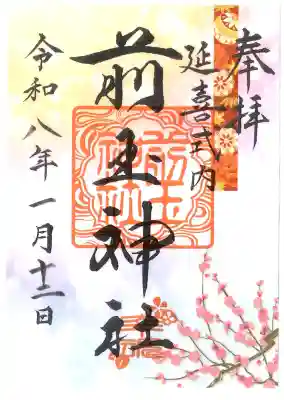 奉拝
延喜式内
前玉神社
令和八年一月十二日